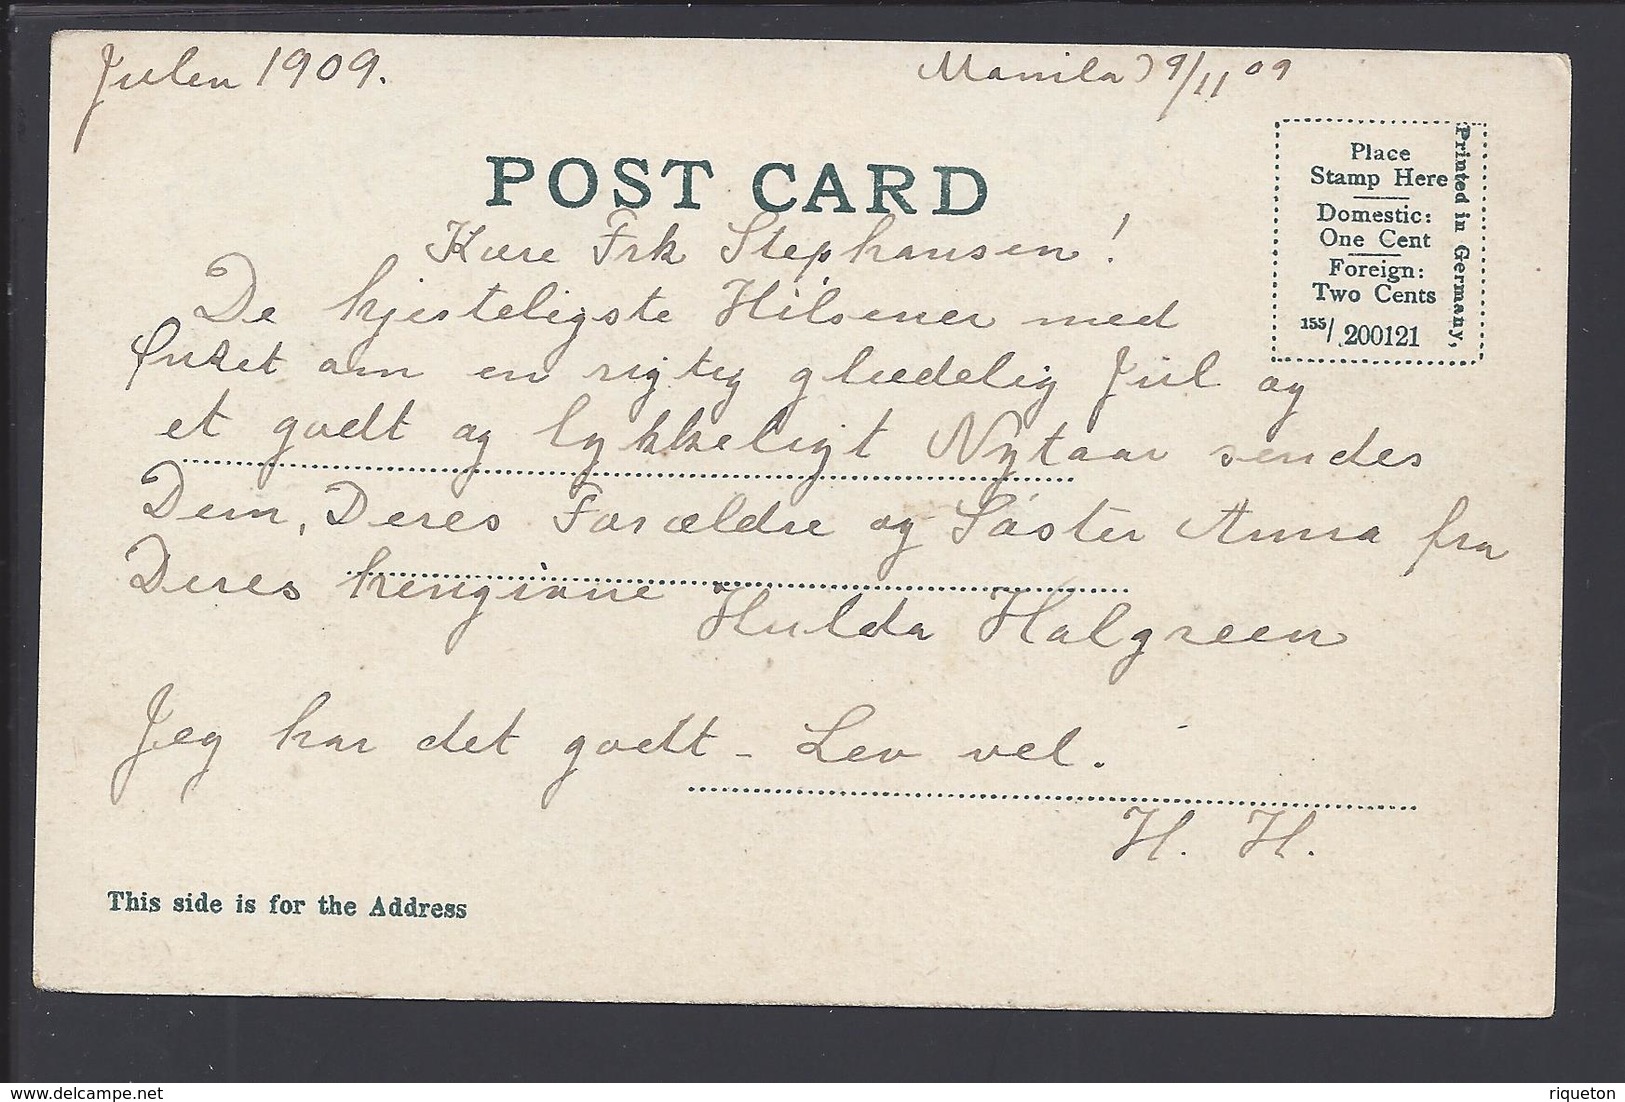 Julen 1909.
Manila 9/11 09
POST CARD
Place
Stamp Here
Domestic:
One Cent
Foreign:
Two Cents
155/ 200121
Printed in Germany,
Kære Frk Stephansen!
De hjerteligste Hilsener med
Ønsket om en rigtig glædelig Jul og
et godt og lykkeligt Nytaar sendes
Dem, Deres Forældre og Søster Anna fra
Deres hengivne
Hulda Halgreen
Jeg har det godt - Lev vel.
H. H.
This side is for the Address
www.delcampe.net
riqueton